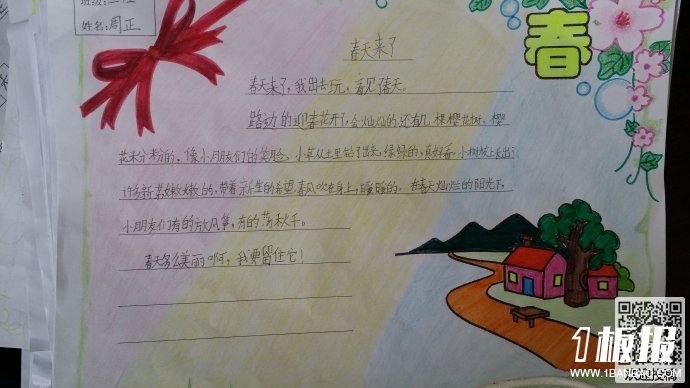 姓名:周正
春
春天来了
春天来了,我出去玩,看见春天。
路边的迎春花开了,金灿灿的还有几棵樱花树、樱
花米分粉的,像小月朋友们的笑脸,小草从土里钻了出来,绿绿的,真好看。小树枝上长出了
许多新嫩嫩的,带着新生的希望,春风吹在身上,暖暖的。在春天灿烂的阳光下,
小朋友们有的放风筝,有的荡秋千。
春天多么美丽啊,我要留住它!
1板报
WWW.1BANBAO.COM
欢迎投稿